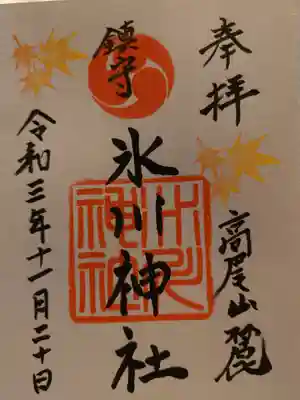 奉拝
高尾山麓
鎮守
氷川神社
氷川神社
令和三年十一月二十日